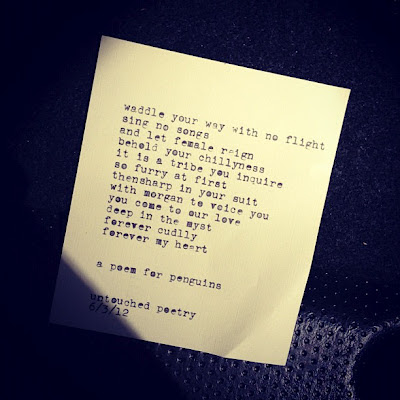 waddle your way with no flight
sing no songs
and let female reign
behold your chillyness
it is a tribe you inquire
so furry at first
thensharp in your suit
with morgan to voice you
you come to our love
deep in the myst
forever cudlly
forever my heart
a poem for penguins
untouched poetry
6/3/12